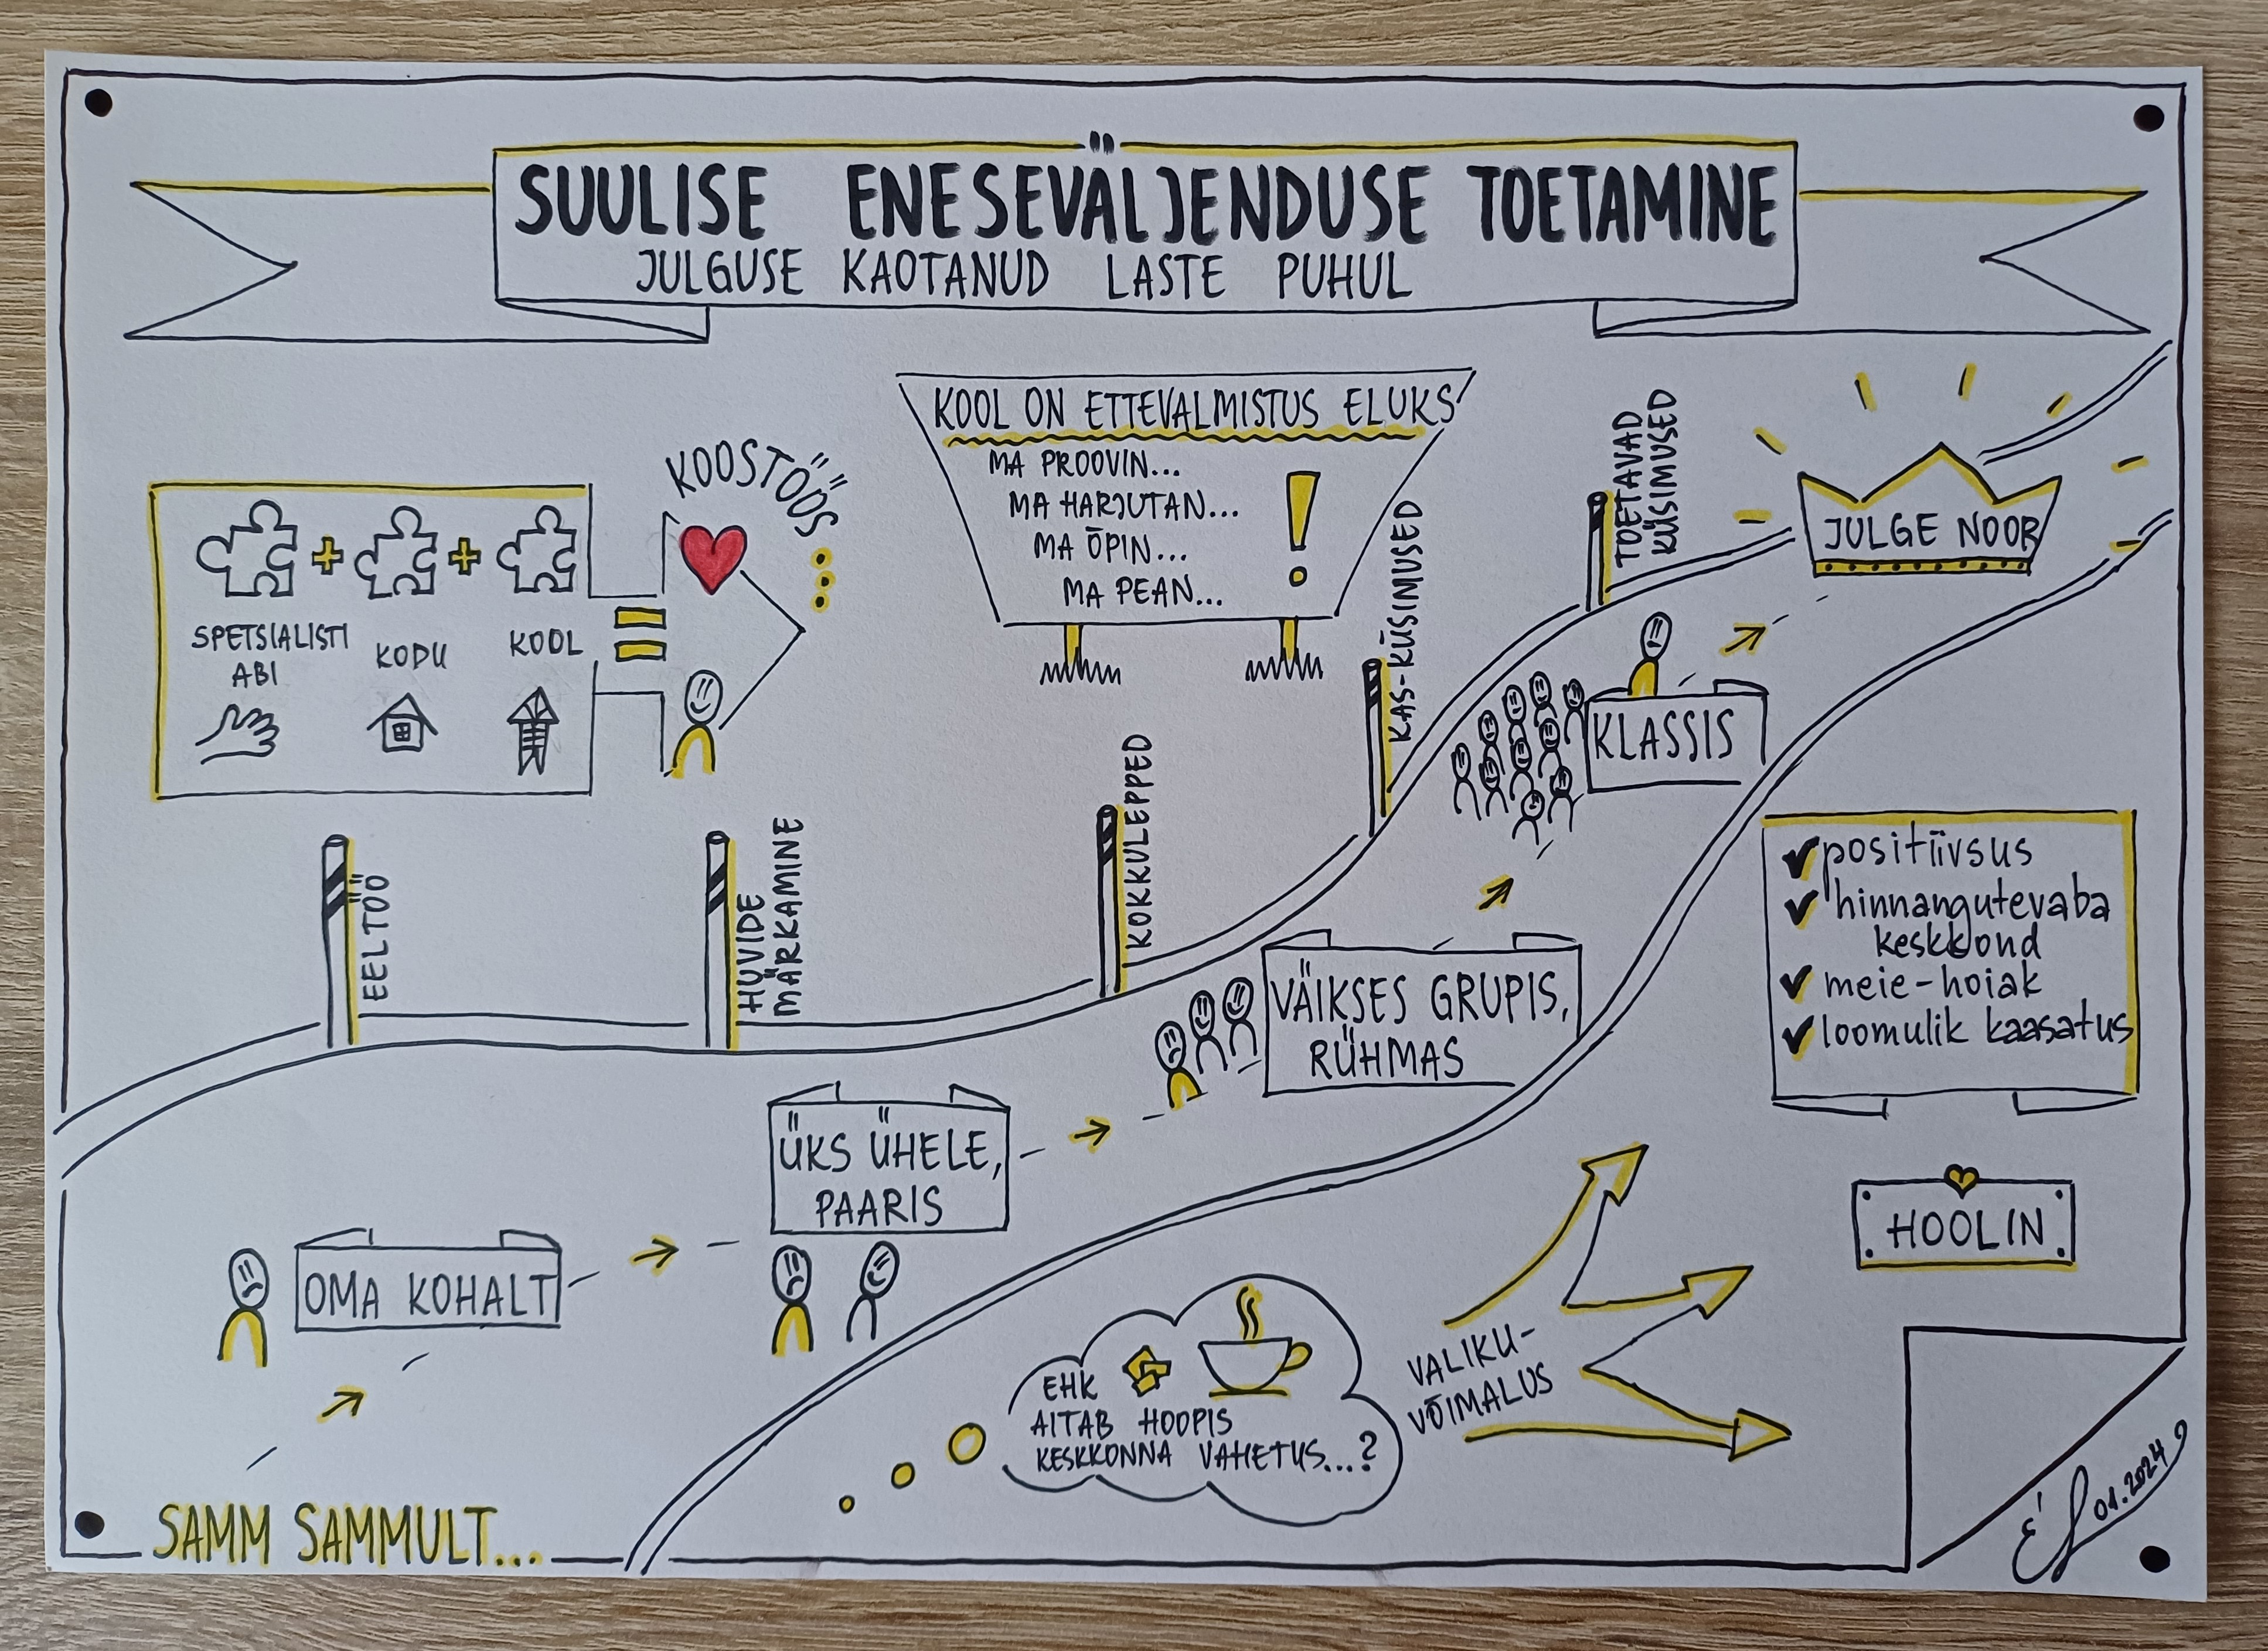 SUULISE ENESEVÄLJENDUSE TOETAMINE
JULGUSE KAOTANUD LASTE PUHUL
KOOSTÖÖS
SPETSIALISTI
ABI
KODU
KOOL
KOOL ON ETTEVALMISTUS ELUKS
MA PROOVIN...
MA HARJUTAN...
MA ÕPIN...
MA PEAN...
!
TOETAVAD
KÜSIMUSED
JULGE NOOR
KAS-KÜSIMUSED
KLASSIS
EELTÖÖ
HUVIDE
MÄRKAMINE
KOKKULEPPED
positiivsus
hinnangutevaba
keskkond
meie-hoiak
loomulik kaasatus
VÄIKSES GRUPIS,
RÜHMAS
ÜKS ÜHELE,
PAARIS
OMA KOHALT
HOOLIN
EHK
AITAB HOOPIS
KESKKONNA VAHETUS...?
VALIKU-
VÕIMALUS
SAMM SAMMULT...
01.2024